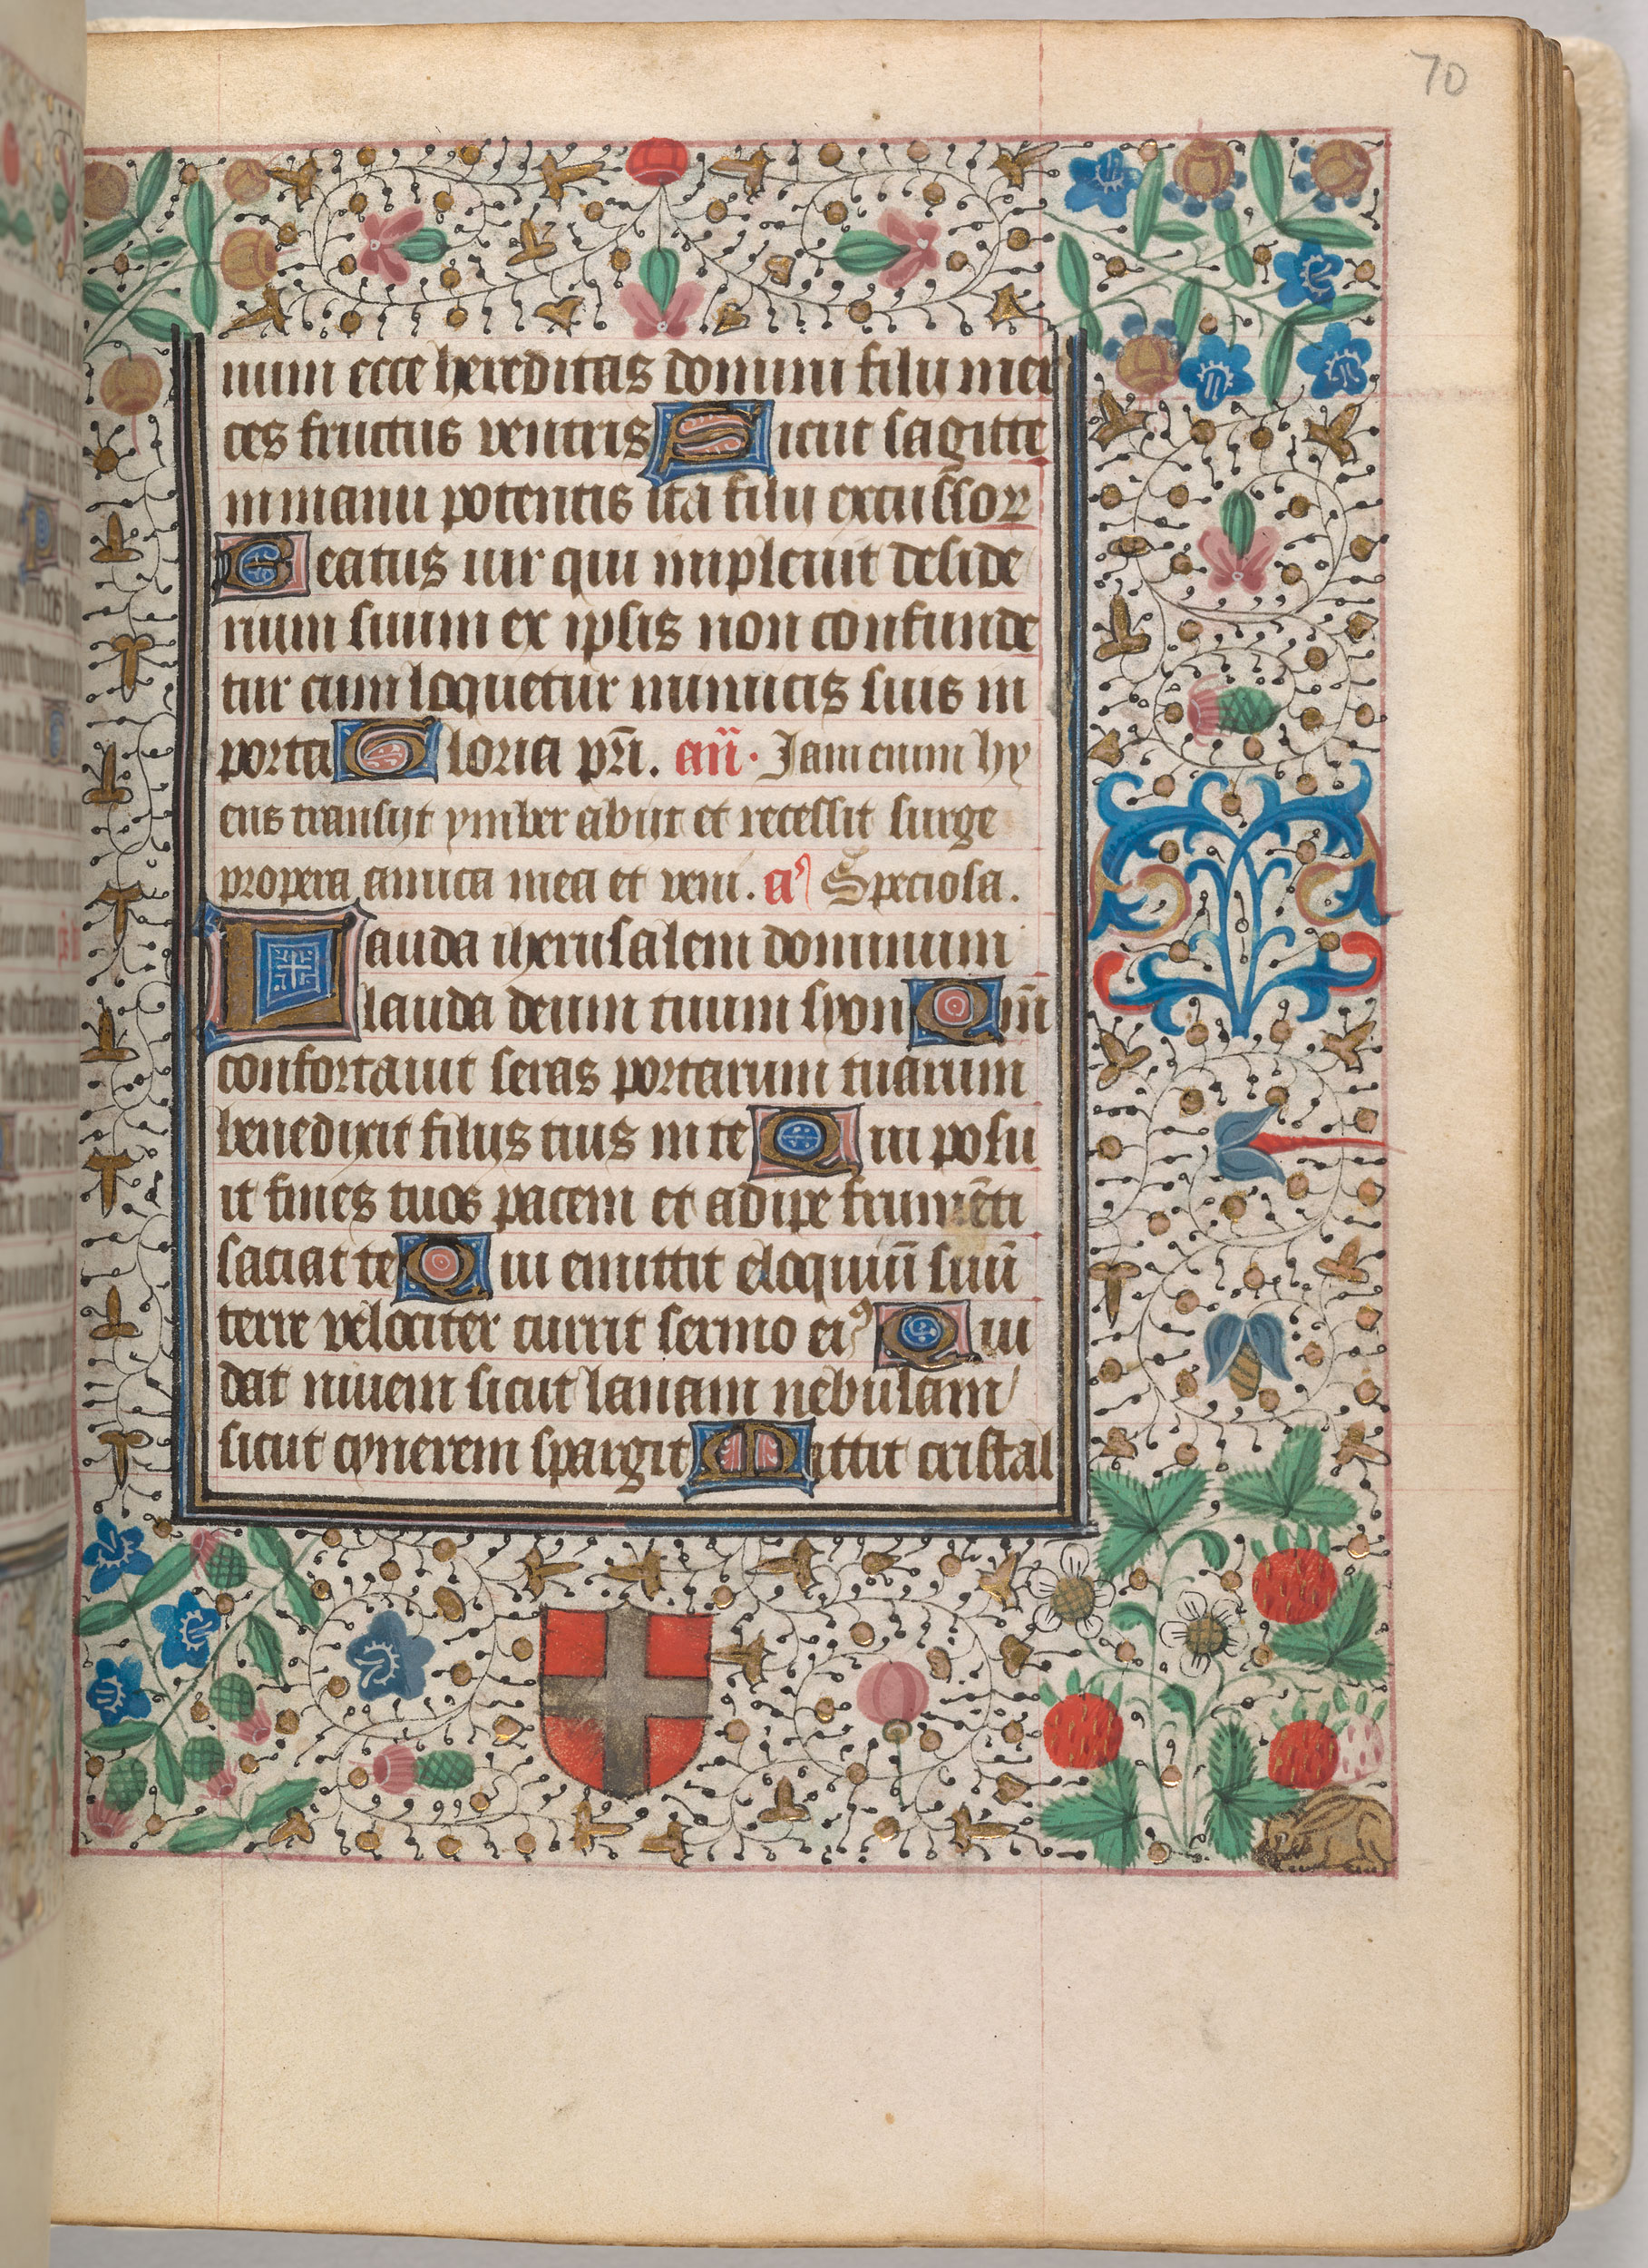 70
num ecce hereditas domini filij mer
ces fructus ventris Sicut sagitte
in manu potentis ita filij excussor
Beatus uir qui impleuit deside
rium suum ex ipsis non confunde
tur cum loquetur inimicis suis in
porta Gloria pr̄i. an̄. Iam enim hy
ens transijt ymber abijt et recessit surge
propera amica mea et veni. a Speciosa.
Lauda iherusalem dominum
lauda deum tuum syon Qm̄
confortauit seras portarum tuarum
benedixit filijs tuis in te Qui posu
it fines tuos pacem et adipe frumēti
saciat te Qui emittit eloquiū suū
terre velociter currit sermo eiꝰ Qui
dat niuem sicut lanam nebulam
sicut cynerem spargit Mittit cristal